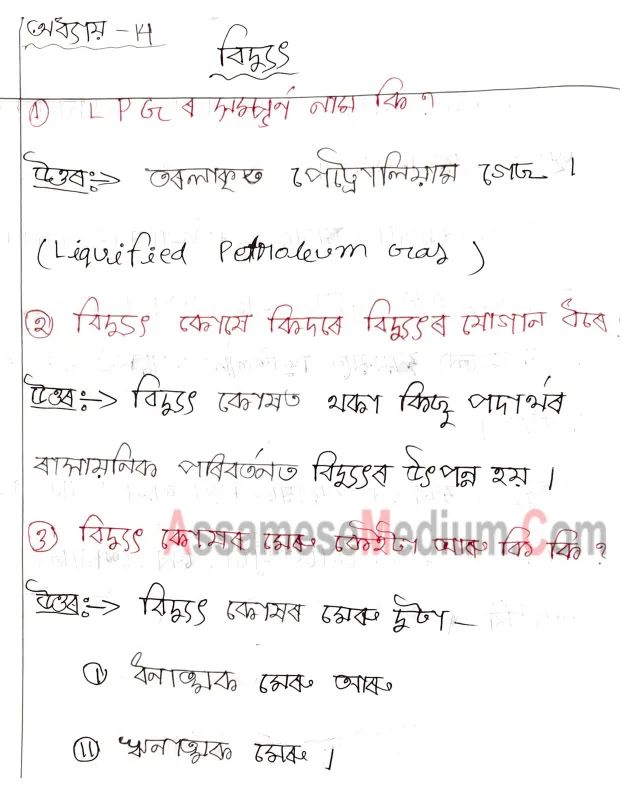 অধ্যায় - 14
বিদ্যুৎ
① LPG ৰ সম্পূৰ্ণ নাম কি?
উত্তৰঃ→ তৰলীকৃত পেট্ৰোলিয়াম গেছ।
(Liquified Petroleum Gas)
② বিদ্যুৎ কোষে কিদৰে বিদ্যুৎৰ যোগান ধৰে?
উত্তৰঃ→ বিদ্যুৎ কোষত থকা কিছু পদাৰ্থৰ
ৰাসায়নিক পৰিবৰ্তনত বিদ্যুৎৰ উৎপন্ন হয়।
AssameseMedium.Com
③ বিদ্যুৎ কোষৰ মেৰু কেইটা আৰু কি কি?
উত্তৰঃ→ বিদ্যুৎ কোষৰ মেৰু দুটা—
① ধনাত্মক মেৰু আৰু
⑪ ঋনাত্মক মেৰু।